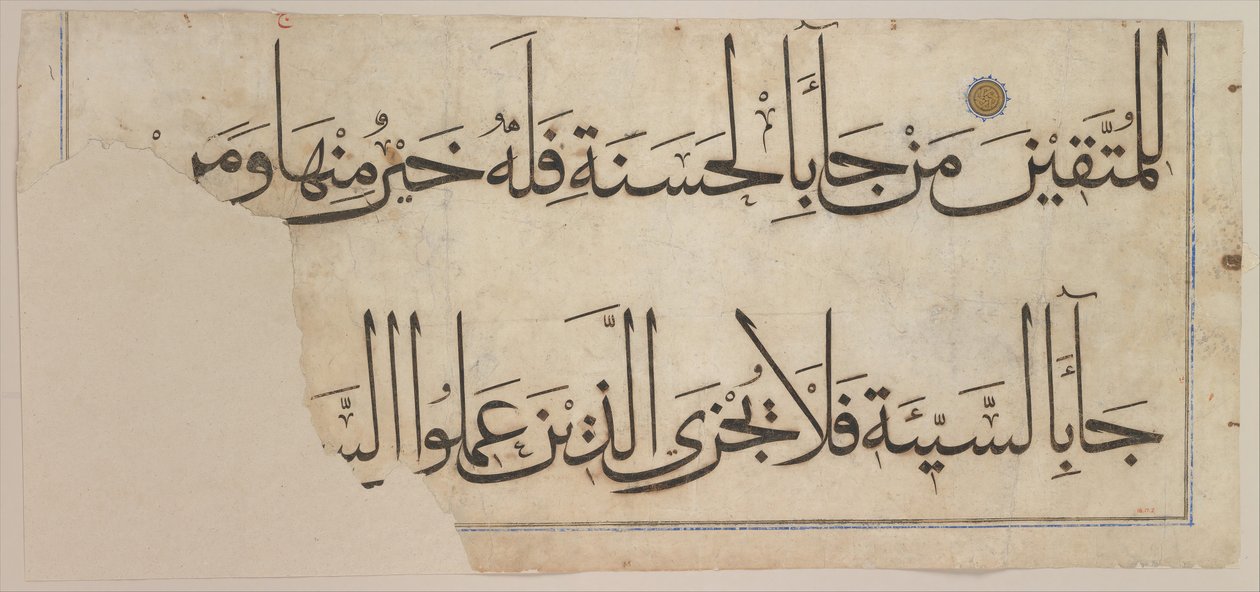 ج
لِلْمُتَّقِيْنَ مَنْ جَآءَ بِالْحَسَنَةِ فَلَهُ خَيْرٌ مِنْهَا وَمَنْ
جَآءَ بِالسَّيِّئَةِ فَلَا يُجْزَى الَّذِيْنَ عَمِلُوا
18.17.2